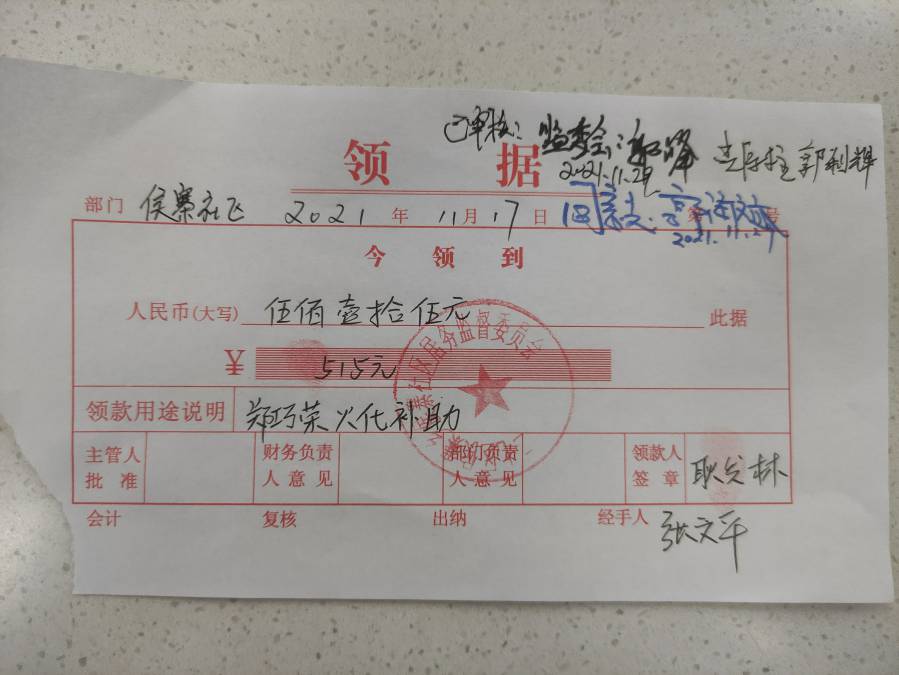 已审核：监委会：
2021.11.29
郭利辉
领据
同意支
2021.11.29
部门 侯寨社区 2021年11月17日 号
今领到
人民币(大写) 伍佰壹拾伍元 此据
¥ 515元
领款用途说明 郑巧荣火化补助
主管人批准 财务负责人意见 部门负责人意见 领款人签章 耿分林
会计 复核 出纳 经手人 张文平